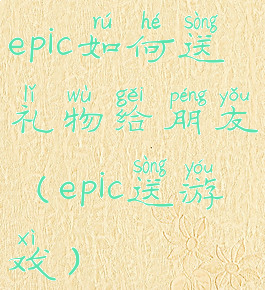 rú hé sòng
epic如何送
lǐ wù gěi péng yǒu
礼物给朋友
sòng yóu
(epic送游
xì
戏)